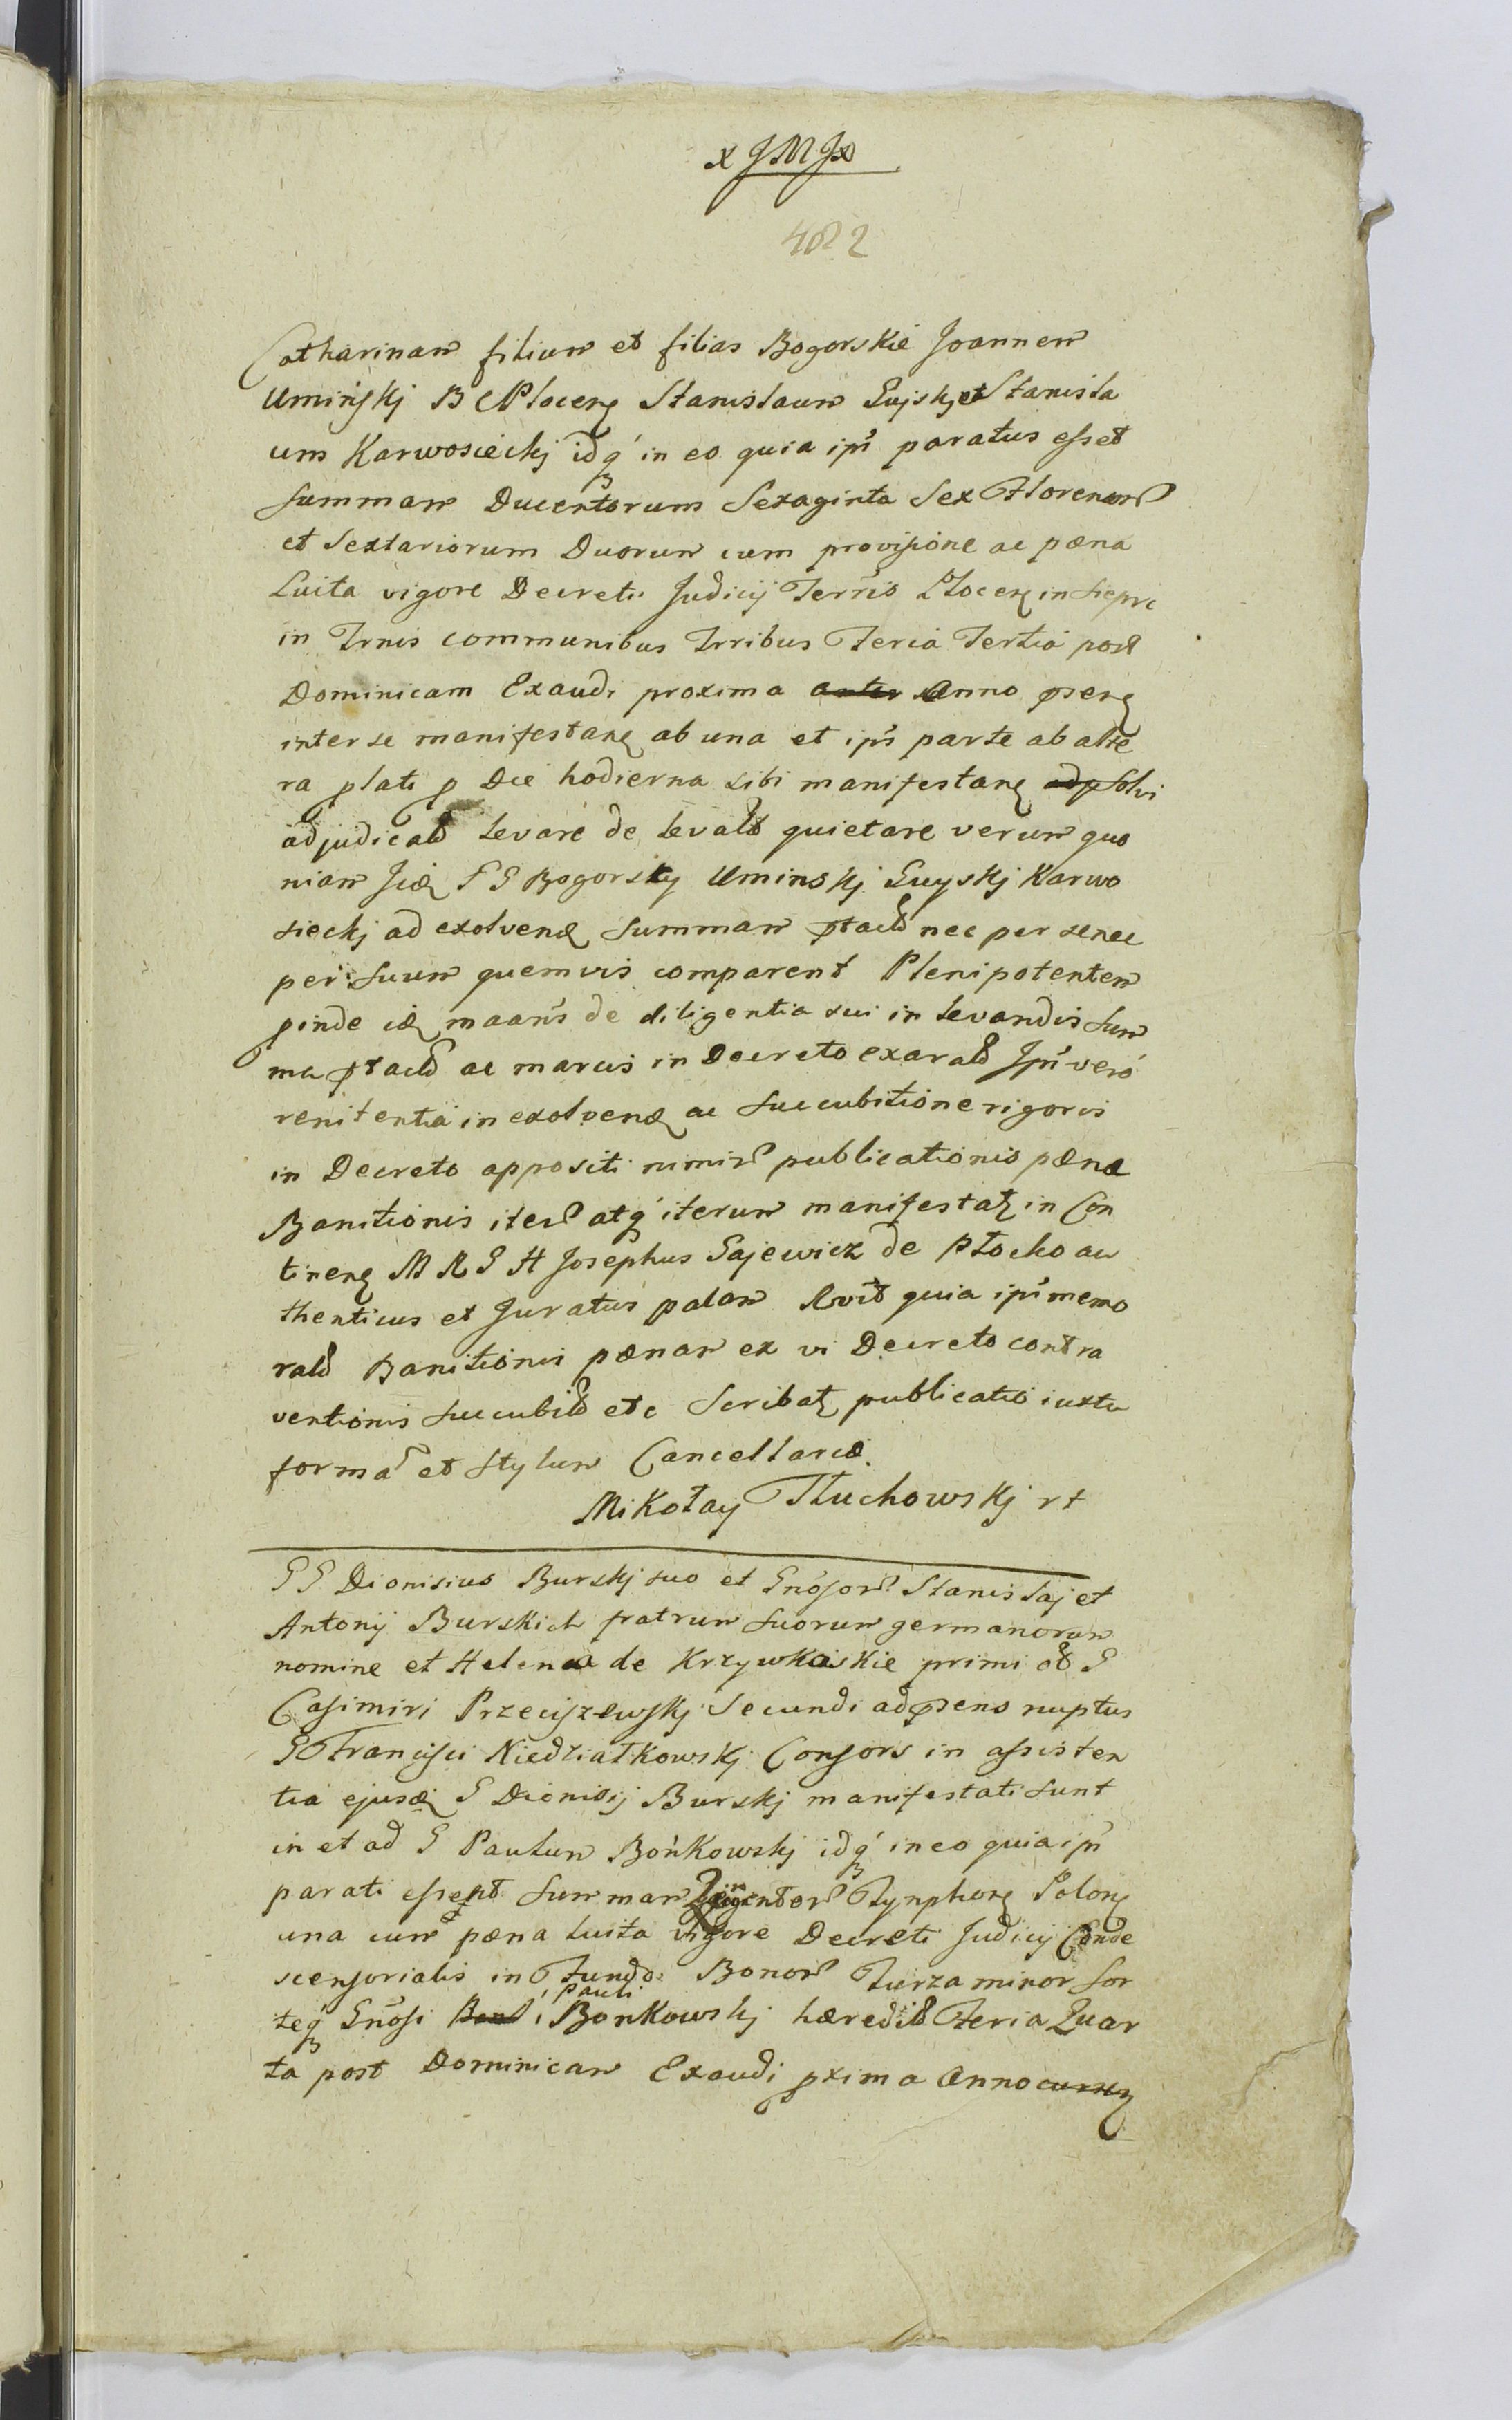 x JMJ x
4082
Catharinam filium et filias Bogorskie Joannem
Uminskj B C Plocen Stanislaum Gujskj et Stanisla
um Karwosieckj idq in eo quia ipi paratus esset
Summam Ducentorum Sexaginta Sex Florenor
et Sextariorum Duorum cum provisione ac pæna
Luita vigore Decreti Judicij Terris Plocen in Siepre
in Trnis communibus Trribus Feria Tertia post
Dominicam Exaudi proxima Anno psen
inter se manifestan ab una et ips parte ab alte
ra plati p Die hodierna sibi manifestan solvi
adjudicata Levare de levatis quietare verum quo
niam iid G G Bogorsky Uminskj Guyskj Karwo
sieckj ad exolvend Summam ptact nec per se nec
per suum quemvis comparent Plenipotentem
pinde id maans de diligentia sui in levandis Sum
ma ptact ac marcis in Decreto exarat Ipi vero
renitentia in exolvend ac succubitione rigoris
in Decreto appositi nimir publicationis pænæ
Banitionis iter atq iterum manifestat in Con
tinen M R G H Josephus Gajewicz de Płocko au
thenticus et Juratus palam Rvit quia ipi memo
rati Banitionis pænam ex vi Decreto contra
ventionis succubit etc Scribat publicatio iuxta
forma et stylum Cancellariæ
Mikołay Tłuchowskj rt
G G Dionisius Burskj suo et Gnosor Stanislaj et
Antonij Burskich fratrum suorum germanorum
nomine et Helena de Krzywkoskie primi ob G
Casimiri Przeciszewskj Secundi ad psens nuptus
G Francisci Niedziałkowskj Consors in assisten
tia ejusd G Dionisij Burskj manifestati sunt
in et ad G Paulum Bońkowskj idq in eo quia ipi
parati essent Summam Tynphon Polon
una cum pæna luita vigore Decreti Judicij Conde
scensorialis in Fundo Bonor Turza minor Sor
teq Gnosi Pauli Bonkowskj hæredit Feria Quar
ta post Dominicam Exaudi pxima Anno